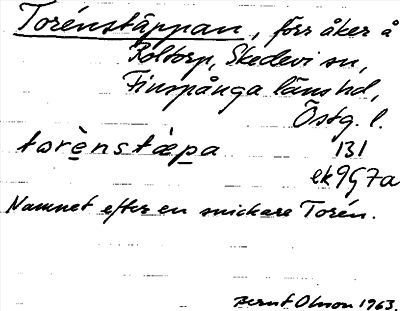 Torénstäppan, förr åker å
Roltorp, Skedevi sn,
Finspånga läns hd,
Östg. l.
torènstæpa 131
ek 9G7a
Namnet efter en snickare Torén.
Bernt Olsson 1963.